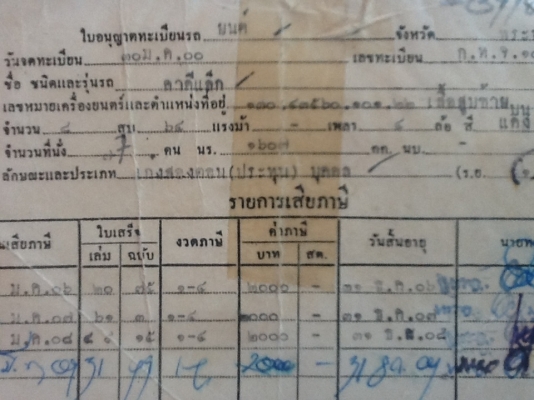 ใบอนุญาตทะเบียนรถ ยนต์ จังหวัด พระ
วันจดทะเบียน ๓๐ม.ค.๐๐ เลขทะเบียน ก.ท.จ.
ชื่อ ชนิดและรุ่นรถ คาดีแล็ก
เลขหมายเครื่องยนต์และตำแหน่งที่อยู่ ๑๓๐.๔๓๕๖๐.๑๐๑.๒๒ เสื้อสูบซ้ายบน
จำนวน ๘ สูบ ๖๔ แรงม้า - เพลา ๔ ล้อ สี แดง
จำนวนที่นั่ง ๗ คน นร. ๑๖๐๗ กก. นบ. -
ลักษณะและประเภท เก๋งสองตอน(ประทุน) บุคคล (ร.ย.
รายการเสียภาษี
นเสียภาษี ใบเสร็จ งวดภาษี ค่าภาษี วันสิ้นอายุ นายทะ
เล่ม ฉบับ บาท สต.
ม.ค.๐๖ ๒๐ ๗๕ ๑-๔ ๒๐๐๐ - ๓๑ ธ.ค.๐๖
ม.ค.๐๗ ๖๑ ๓ ๑-๔ ๒๐๐๐ - ๓๑ ธ.ค.๐๗
ม.ค.๐๘ ๑๕ ๑-๔ ๒๐๐๐ - ๓๑ ธ.ค.๐๘
2000 -